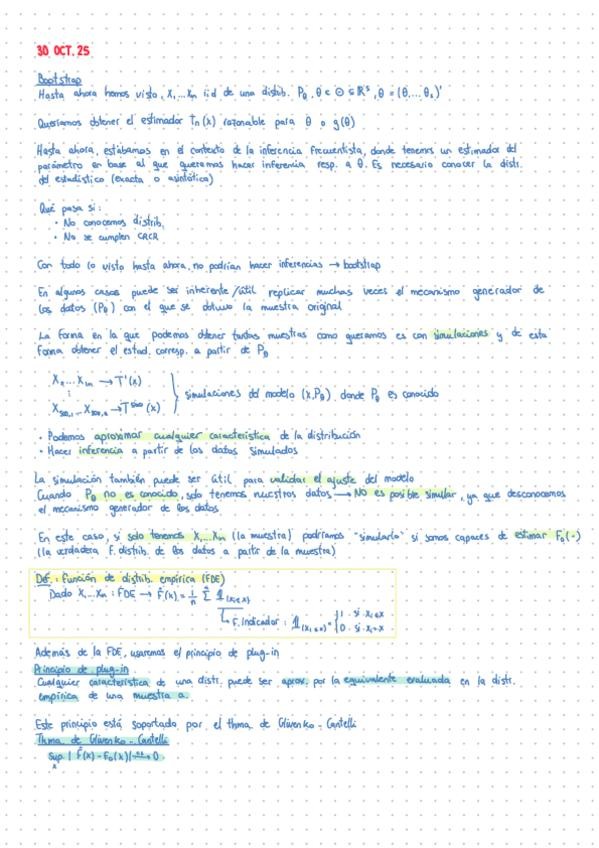 30 OCT. 25
Bootstrap
Hasta ahora hemos visto, X₁...Xₙ iid de una distrib. P_θ, θ ∈ Θ ⊆ ℝˢ, θ = (θ₁...θₛ)'
Queríamos obtener el estimador Tₙ(x) razonable para θ o g(θ)
Hasta ahora, estábamos en el contexto de la inferencia frecuentista, donde tenemos un estimador del
parámetro en base al que queramos hacer inferencia resp. a θ. Es necesario conocer la distr.
del estadístico (exacta o asintótica)
Qué pasa si:
• No conocemos distrib.
• No se cumplen CRCR
Con todo lo visto hasta ahora, no podrían hacer inferencias → bootstrap
En algunos casos puede ser inherente/útil replicar muchas veces el mecanismo generador de
los datos (P_θ) con el que se obtuvo la muestra original
La forma en la que podemos obtener tantas muestras como queramos es con simulaciones y de esta
forma obtener el estad. corresp. a partir de P_θ
X₁...X₁ₙ → T¹(x)
⋮ } simulaciones del modelo (x, P_θ) donde P_θ es conocido
X₅₀₀,₁...X₅₀₀,ₙ → T⁵⁰⁰(x)
• Podemos aproximar cualquier característica de la distribución
• Hacer inferencia a partir de los datos simulados
La simulación también puede ser útil para validar el ajuste del modelo
Cuando P_θ no es conocido, solo tenemos nuestros datos → NO es posible simular, ya que desconocemos
el mecanismo generador de los datos
En este caso, si solo tenemos X₁...Xₙ (la muestra) podríamos "simularlo" si somos capaces de estimar F₀(·)
(la verdadera F. distrib. de los datos a partir de la muestra)
Def.: Función de distrib. empírica (FDE)
Dado X₁...Xₙ : FDE → F̂(x) = 1/n Σ 𝟙(xᵢ≤x)
↳ F. Indicador : 𝟙(xᵢ≤x) = { 1 si xᵢ≤x
0 si xᵢ>x
Además de la FDE, usaremos el principio de plug-in
Principio de plug-in
Cualquier característica de una distr. puede ser aprox. por la equivalente evaluada en la distr.
empírica de una muestra a.
Este principio está soportado por el thma de Glivenko-Cantelli
Thma de Glivenko-Cantelli
sup | F̂(x) - F₀(x)| → 0
x